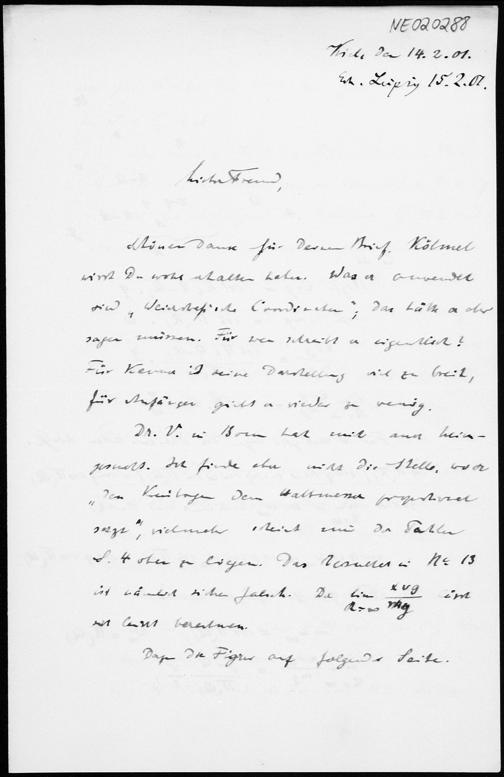 NE020288
Kiel den 14.2.01.
Erh. Leipzig 15.2.01.
Lieber Freund,
schönen Dank für Deinen Brief. Kölmel
wirst Du wohl erhalten haben. Was er anwendet
sind „Weierstraßsche Coordinaten", das hätte er aber
sagen müssen. Für wen schreibt er eigentlich?
Für Kenner ist seine Darstellung viel zu breit,
für Anfänger giebt er wieder zu wenig.
Dr. V. in Bonn hat mich auch heim-
gesucht. Ich finde aber nicht die Stelle, wo er
„den Kreisbogen dem Halbmesser proportional
setzt", vielmehr scheint mir der Fehler
S. 4 oben zu liegen. Das Resultat in No 13
ist nämlich sicher falsch. Da lim lässt
sich leicht berechnen.
Dazu die Figur auf folgender Seite.